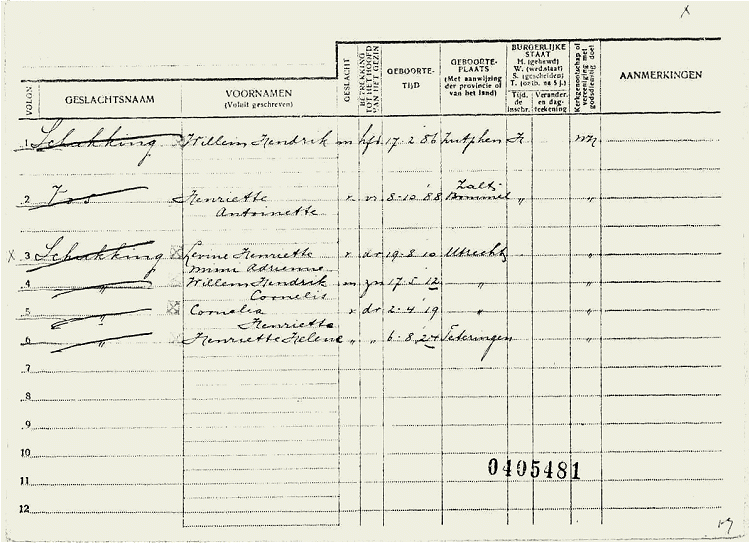 x
VOLGN.
GESLACHTSNAAM
VOORNAMEN
(Voluit geschreven)
GESLACHT
BETREKKING
TOT HET HOOFD
VAN HET GEZIN
GEBOORTE-
TIJD
GEBOORTE-
PLAATS
(Met aanwijzing
der provincie of
van het land)
BURGERLIJKE
STAAT
H. (gehuwd)
W. (wed.staat)
S. (gescheiden)
T. (ontb. na s.).
Tijd.
de
inschr.
Verander.
en dag-
teekening
Kerkgenootschap of
vereeniging met
godsdienstig doel
AANMERKINGEN
1 Schukking Willem Hendrik m hfd 17-2 '86 Zutphen H
2 Vos Henriette v vr 8-10 '88 Zalt-
Antoinette Bommel " "
x 3 Schukking Henriette v dr 19-8 10 Utrecht "
Adrienne
4 " Willem Hendrik m zn 17-5 12 " "
Cornelis
5 " Cornelia v dr 2-4 '19 " "
Henriette
6 " Henriette Helene " " 6-8 24 Teteringen "
7
8
9
10
0405481
11
12